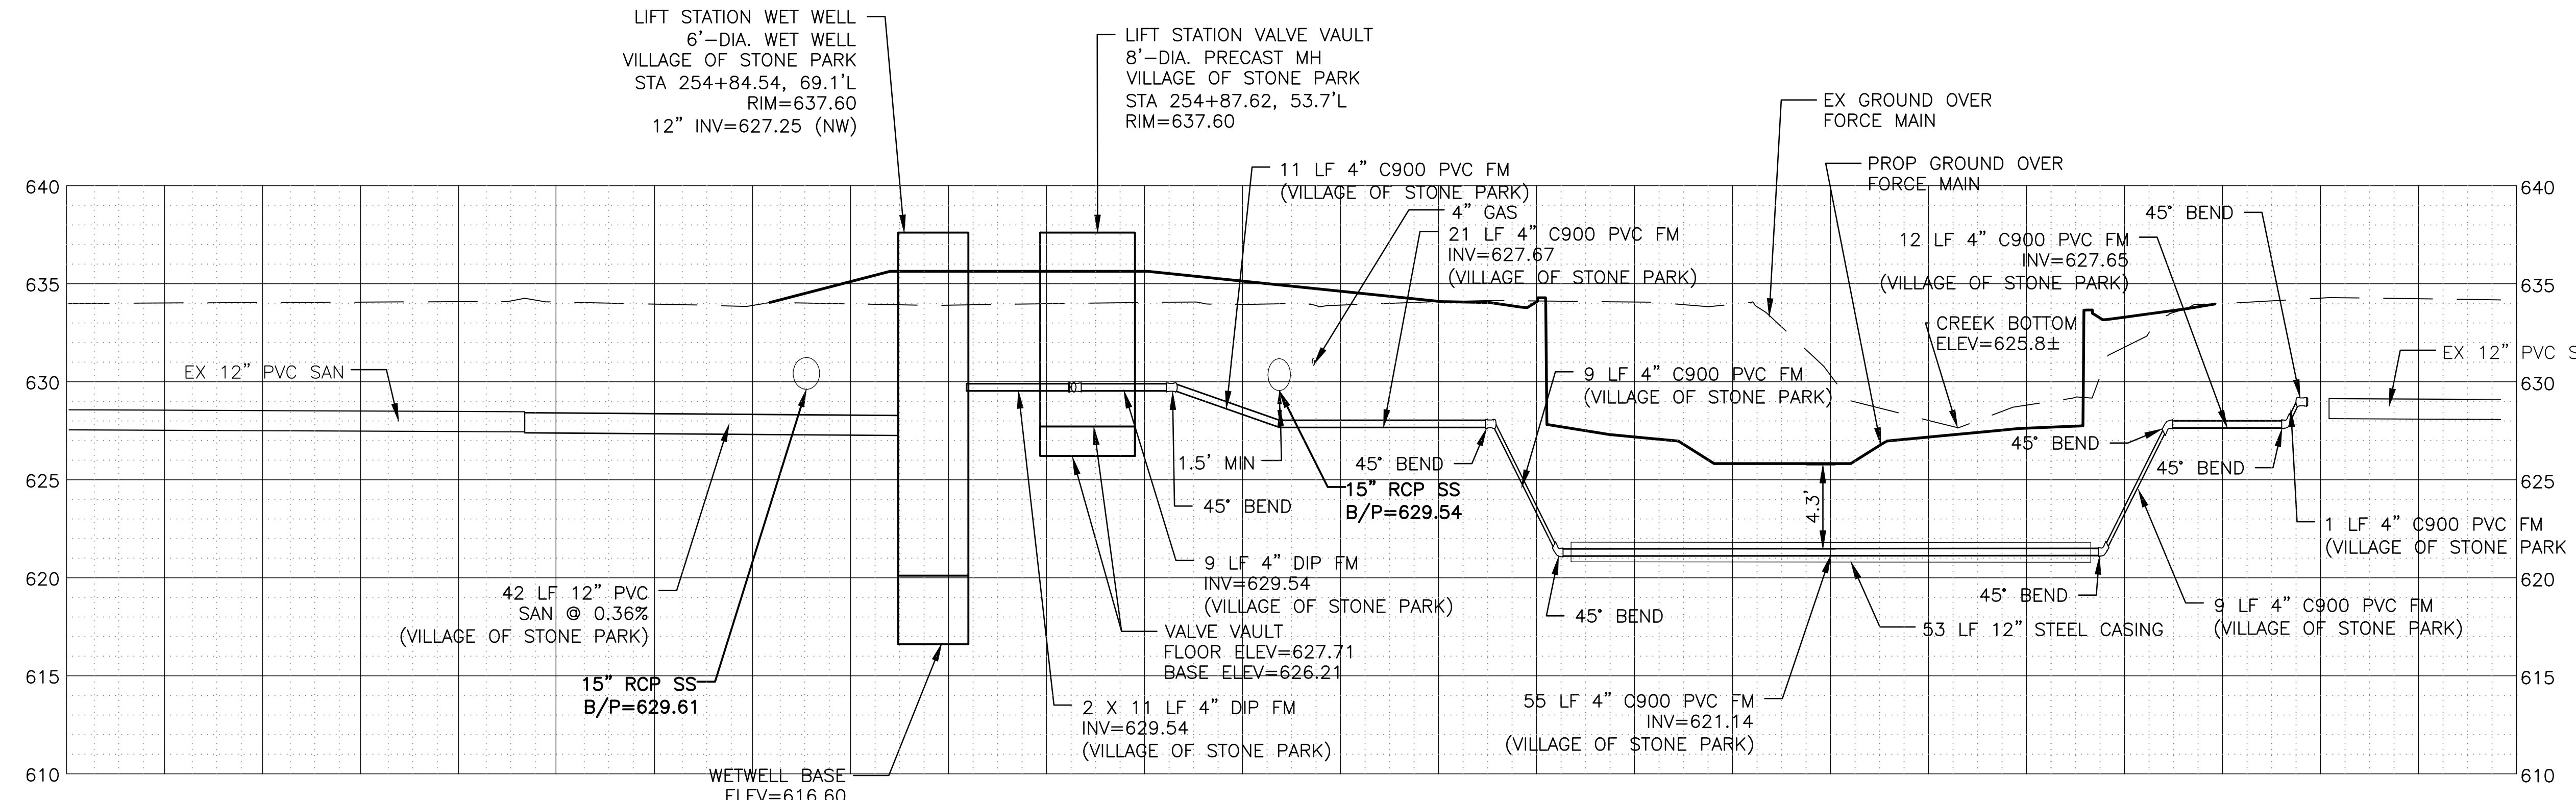 LIFT STATION WET WELL
6'-DIA. WET WELL
VILLAGE OF STONE PARK
STA 254+84.54, 69.1'L
RIM=637.60
12" INV=627.25 (NW)
LIFT STATION VALVE VAULT
8'-DIA. PRECAST MH
VILLAGE OF STONE PARK
STA 254+87.62, 53.7'L
RIM=637.60
EX GROUND OVER
FORCE MAIN
PROP GROUND OVER
FORCE MAIN
11 LF 4" C900 PVC FM
(VILLAGE OF STONE PARK)
4" GAS
21 LF 4" C900 PVC FM
INV=627.67
(VILLAGE OF STONE PARK)
45° BEND
12 LF 4" C900 PVC FM
INV=627.65
(VILLAGE OF STONE PARK)
640
640
635
635
CREEK BOTTOM
ELEV=625.8±
EX 12" PVC SAN
EX 12" PVC S
630
630
9 LF 4" C900 PVC FM
(VILLAGE OF STONE PARK)
45° BEND
1.5' MIN
45° BEND
45° BEND
625
625
15" RCP SS
B/P=629.54
45° BEND
4.3'
1 LF 4" C900 PVC FM
(VILLAGE OF STONE PARK
9 LF 4" DIP FM
INV=629.54
(VILLAGE OF STONE PARK)
620
620
42 LF 12" PVC
SAN @ 0.36%
(VILLAGE OF STONE PARK)
45° BEND
45° BEND
9 LF 4" C900 PVC FM
(VILLAGE OF STONE PARK)
53 LF 12" STEEL CASING
VALVE VAULT
FLOOR ELEV=627.71
BASE ELEV=626.21
615
615
15" RCP SS
B/P=629.61
2 X 11 LF 4" DIP FM
INV=629.54
(VILLAGE OF STONE PARK)
55 LF 4" C900 PVC FM
INV=621.14
(VILLAGE OF STONE PARK)
610
610
WETWELL BASE
ELEV=616.60